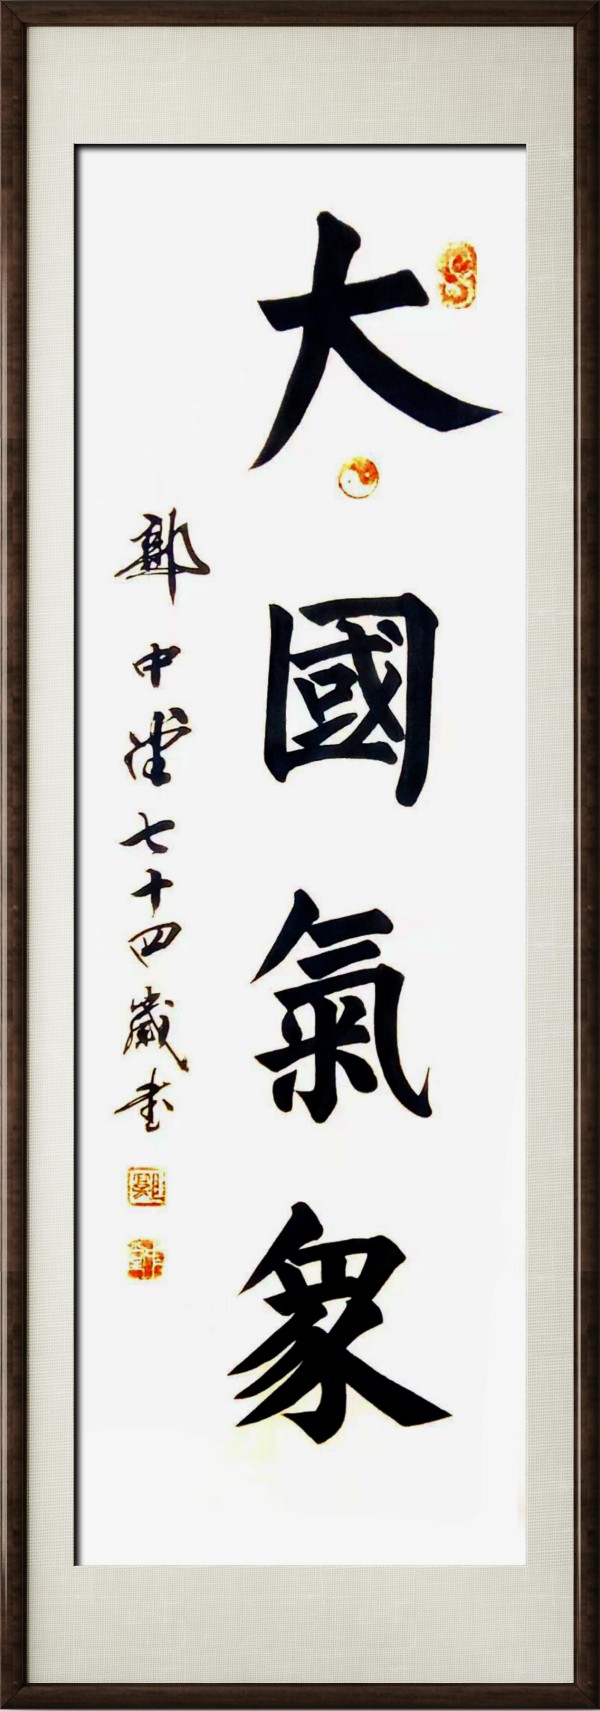 大國氣象
郭中堂七十四歲书